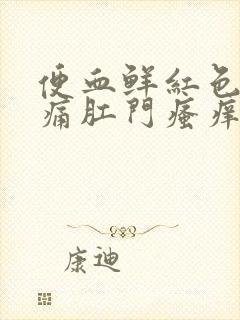 便血鲜紅色
痛肛門瘙痒
康迪